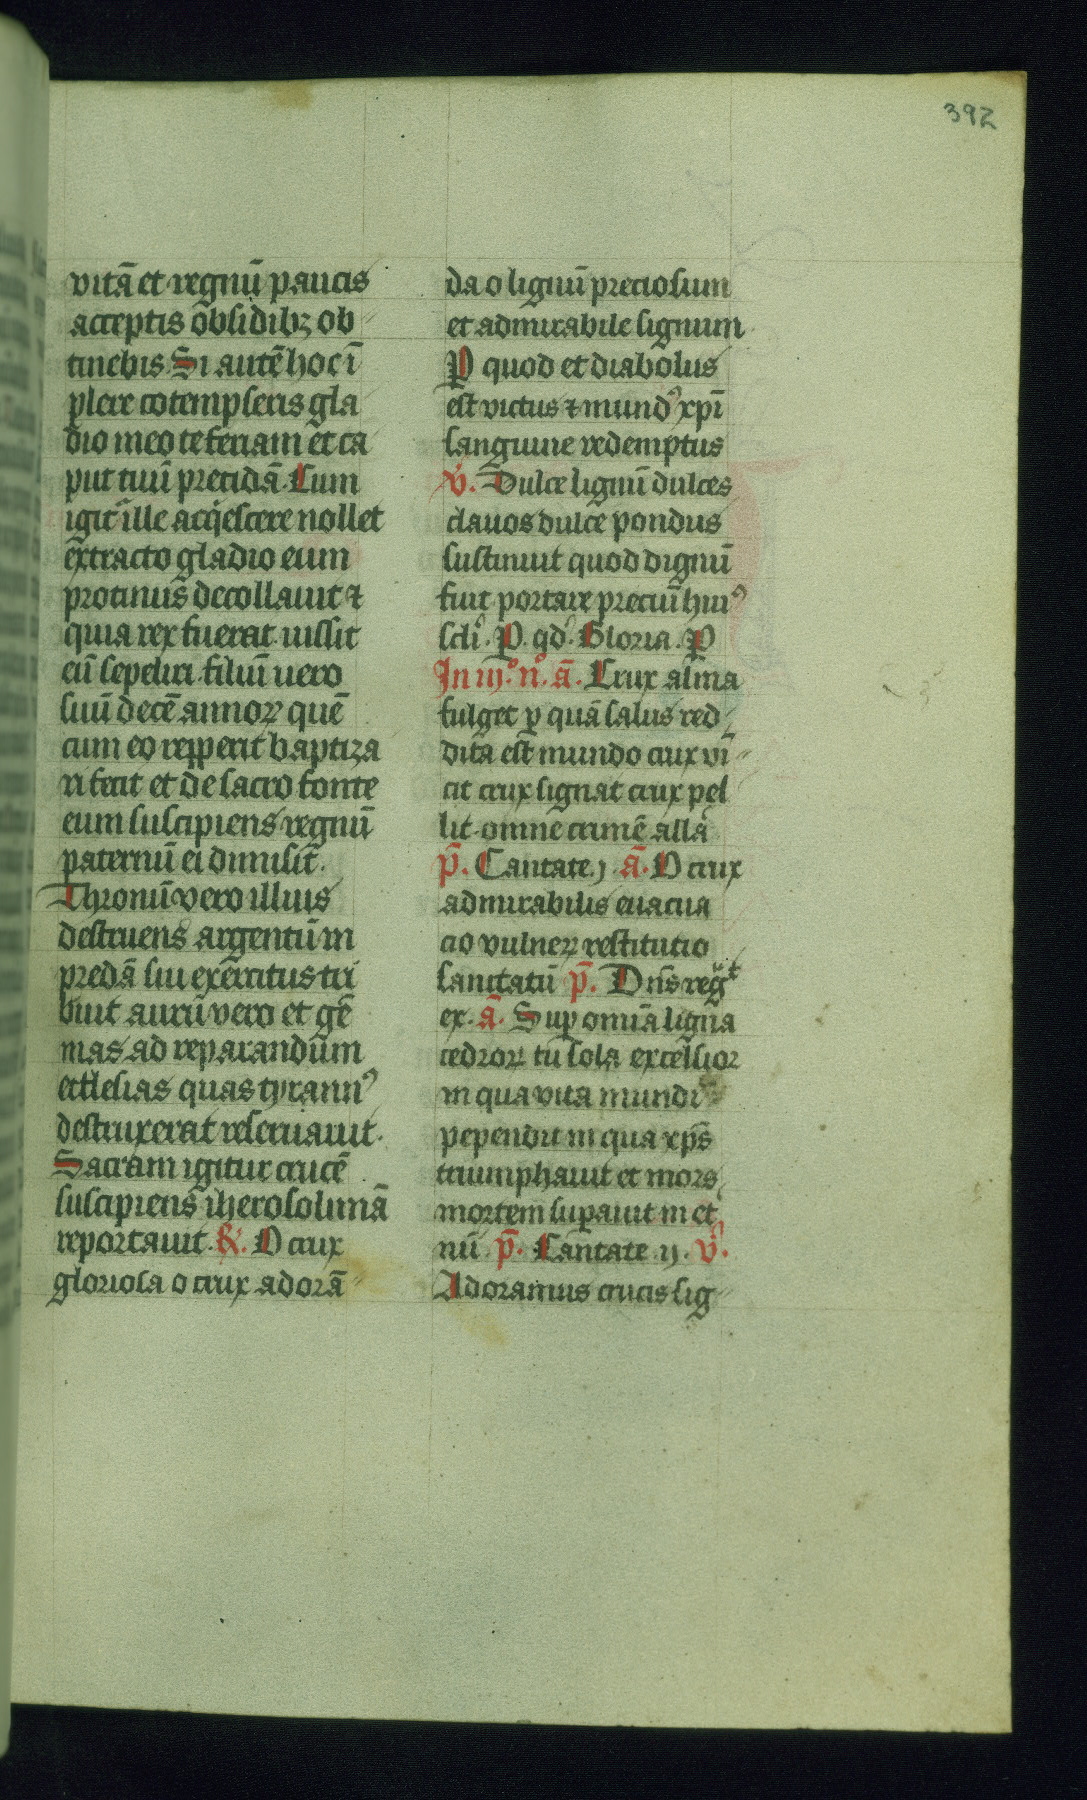 392
vitā et regnū paucis
acceptis obsidibꝫ ob
tinebis. Si autē hoc ī
plere cōtempseris gla
dio meo te feriam et ca
put tuū precidā. Cum
igit᷑ ille acq̇escere nollet
extracto gladio eum
protinus decollauit ⁊
quia rex fuerat iussit
eū sepeliri. filiū uero
suū decē annoꝝ quē
cum eo repperit baptiza
ri fecit et de sacro fonte
eum suscipiens regnū
paternū ei dimisit.
Thronū vero illius
destruens argentū in
predā sui exercitus tri
buit aurū vero et gē
mas ad reparandum
ecclesias quas tyrannꝰ
destruxerat reseruauit.
Sacram igitur crucē
suscipiens iherosolimā
reportauit. ℟. O crux
gloriosa o crux adorā
da o lignū preciosum
et admirabile signum
P quod et diabolus
est victus ⁊ mundꝰ xp̄i
sanguine redemptus
v̾. Dulce lignū dulces
clauos dulce pondus
sustinuit quod dignū
fuit portare preciū huiꝰ
scl̄i. P. qd̾. Gloria. P
In iij.º n.º ā. Crux alma
fulget ꝑ quā salus red
dita est mundo crux vi
cit crux signat crux pel
lit omne crimē alla
p̄. Cantate. j. ā. O crux
admirabilis euacua
cio vulneꝝ restitutio
sanitatū p̄. Dn̄s reg᷑
ex. ā. Suꝑ omīa ligna
cedroꝝ tu sola excelsior
in qua vita mundi
pependit in qua xp̄s
triumphauit et mors
mortem suꝑauit in et
nū. p̄. Cantate. ij. v̾.
Adoramus crucis sig